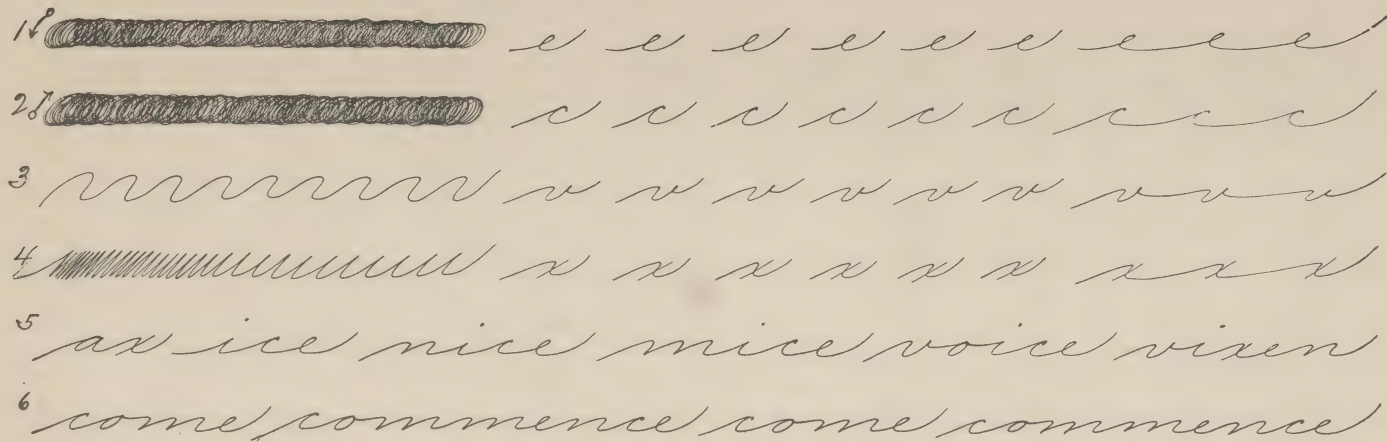 1 e e e e e e e e e
2 c c c c c c c c c
3 v v v v v v v v v
4 x x x x x x x x x
5 ax ice nice mice voice vixen
6 come commence come commence